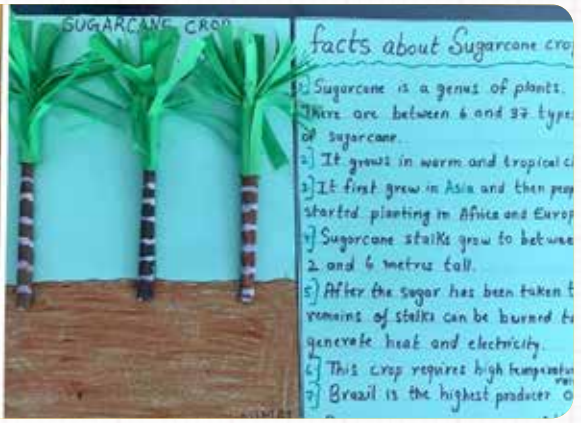 SUGARCANE CROP
facts about Sugarcane cro
1] Sugarcane is a genus of plants.
There are between 6 and 37 type
of sugarcane.
2] It grows in warm and tropical cl
3] It first grew in Asia and then peop
started planting in Africa and Europ
4] Sugarcane stalks grow to betwee
2 and 6 metres tall.
5] After the sugar has been taken t
remains of stalks can be burned to
generate heat and electricity.
6] This crop requires high temperatu
7] Brazil is the highest producer o